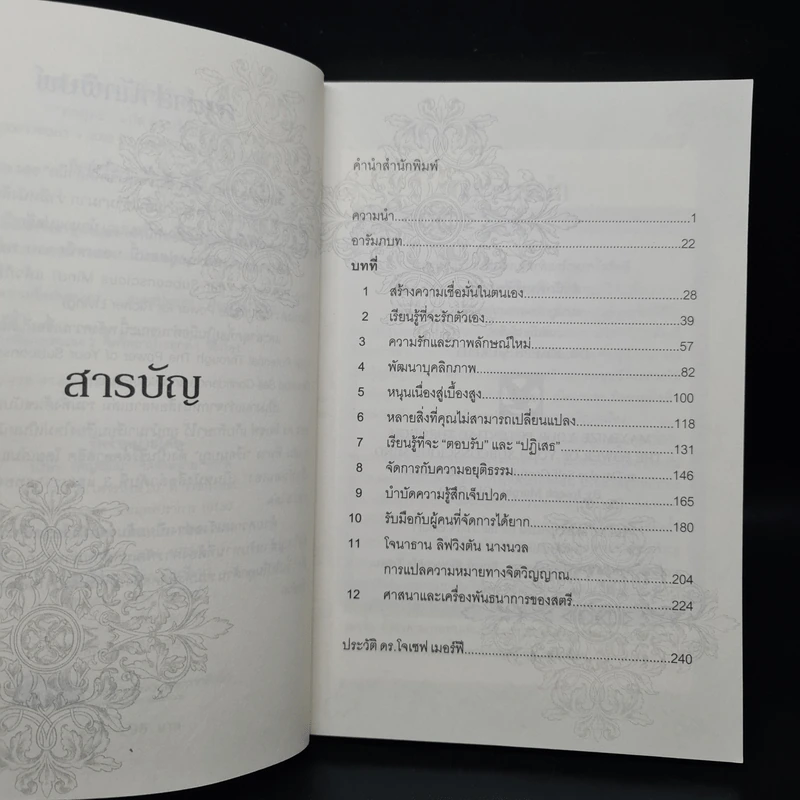 สารบัญ
คำนำสำนักพิมพ์
ความนำ.................................................................1
อารัมภบท...............................................................22
บทที่
1 สร้างความเชื่อมั่นในตนเอง...................................28
2 เรียนรู้ที่จะรักตัวเอง...........................................39
3 ความรักและภาพลักษณ์ใหม่...................................57
4 พัฒนาบุคลิกภาพ..............................................82
5 หนุนเนื่องสู่เบื้องสูง............................................100
6 หลายสิ่งที่คุณไม่สามารถเปลี่ยนแปลง........................118
7 เรียนรู้ที่จะ “ตอบรับ” และ “ปฏิเสธ”..........................131
8 จัดการกับความอยุติธรรม.....................................146
9 บำบัดความรู้สึกเจ็บปวด.......................................165
10 รับมือกับผู้คนที่จัดการได้ยาก.................................180
11 โจนาธาน ลิฟวิงตัน นางนวล
การแปลความหมายทางจิตวิญญาณ............................204
12 ศาสนาและเครื่องพันธนาการของสตรี.........................224
ประวัติ ดร.โจเซฟ เมอร์ฟี...........................................240